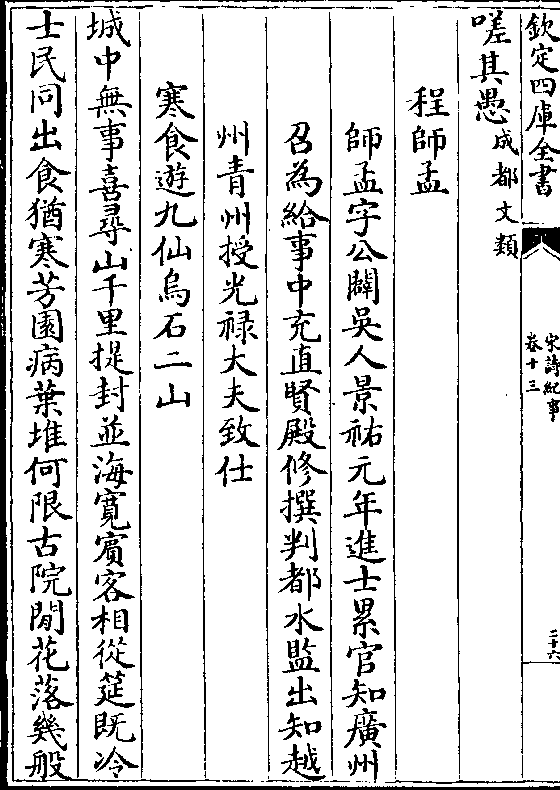 欽定四庫全書
宋詩紀事
卷十三
二十六
嗟其愚成都文類
程師孟
師孟字公闢吳人景祐元年進士累官知廣州
召為給事中充直賢殿修撰判都水監出知越
州青州授光祿大夫致仕
寒食遊九仙烏石二山
城中無事喜尋山千里提封並海寬賓客相從筵既冷
士民同出食猶寒芳園病葉堆何限古院閒花落幾般